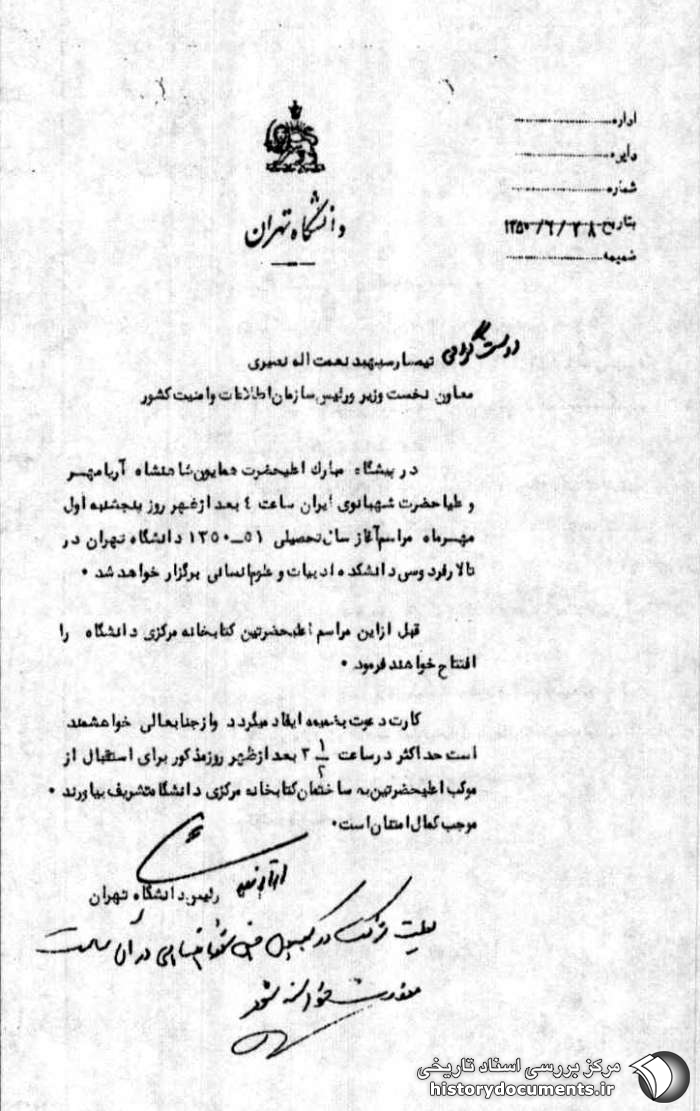 اداره
دایره
شماره
بتاریخ ۱۳۵۰/۶/۲۸
ضمیمه
دانشگاه تهران
دوست گرامی تیمسار سپهبد نعمت اله نصیری
معاون نخست وزیر ورئیس سازمان اطلاعات وامنیت کشور
در پیشگاه مبارک اعلیحضرت همایون شاهنشاه آریامهر
و علیاحضرت شهبانوی ایران ساعت ٤ بعد ازظهر روز پنجشنبه اول
مهرماه مراسم آغاز سال تحصیلی ۵۱ــ۱۳۵۰ دانشگاه تهران در
تالار فردوسی دانشکده ادبیات و علوم انسانی برگزار خواهد شد ۰
قبل ازاین مراسم اعلیحضرتین کتابخانه مرکزی دانشگاه را
افتتاح خواهند فرمود ۰
کارت دعوت بضمیمه ایفاد میگردد وازجنابعالی خواهشمند
است حداکثر درساعت ۳ ۱/۲ بعد ازظهر روزمذکور برای استقبال از
موکب اعلیحضرتین به ساختمان کتابخانه مرکزی دانشگاه تشریف بیاورند ۰
موجب کمال امتنان است۰
رئیس دانشگاه تهران
شرکت در در آن ساعت
معذرت خواسته شود
مرکز بررسی اسناد تاریخی
historydocuments.ir